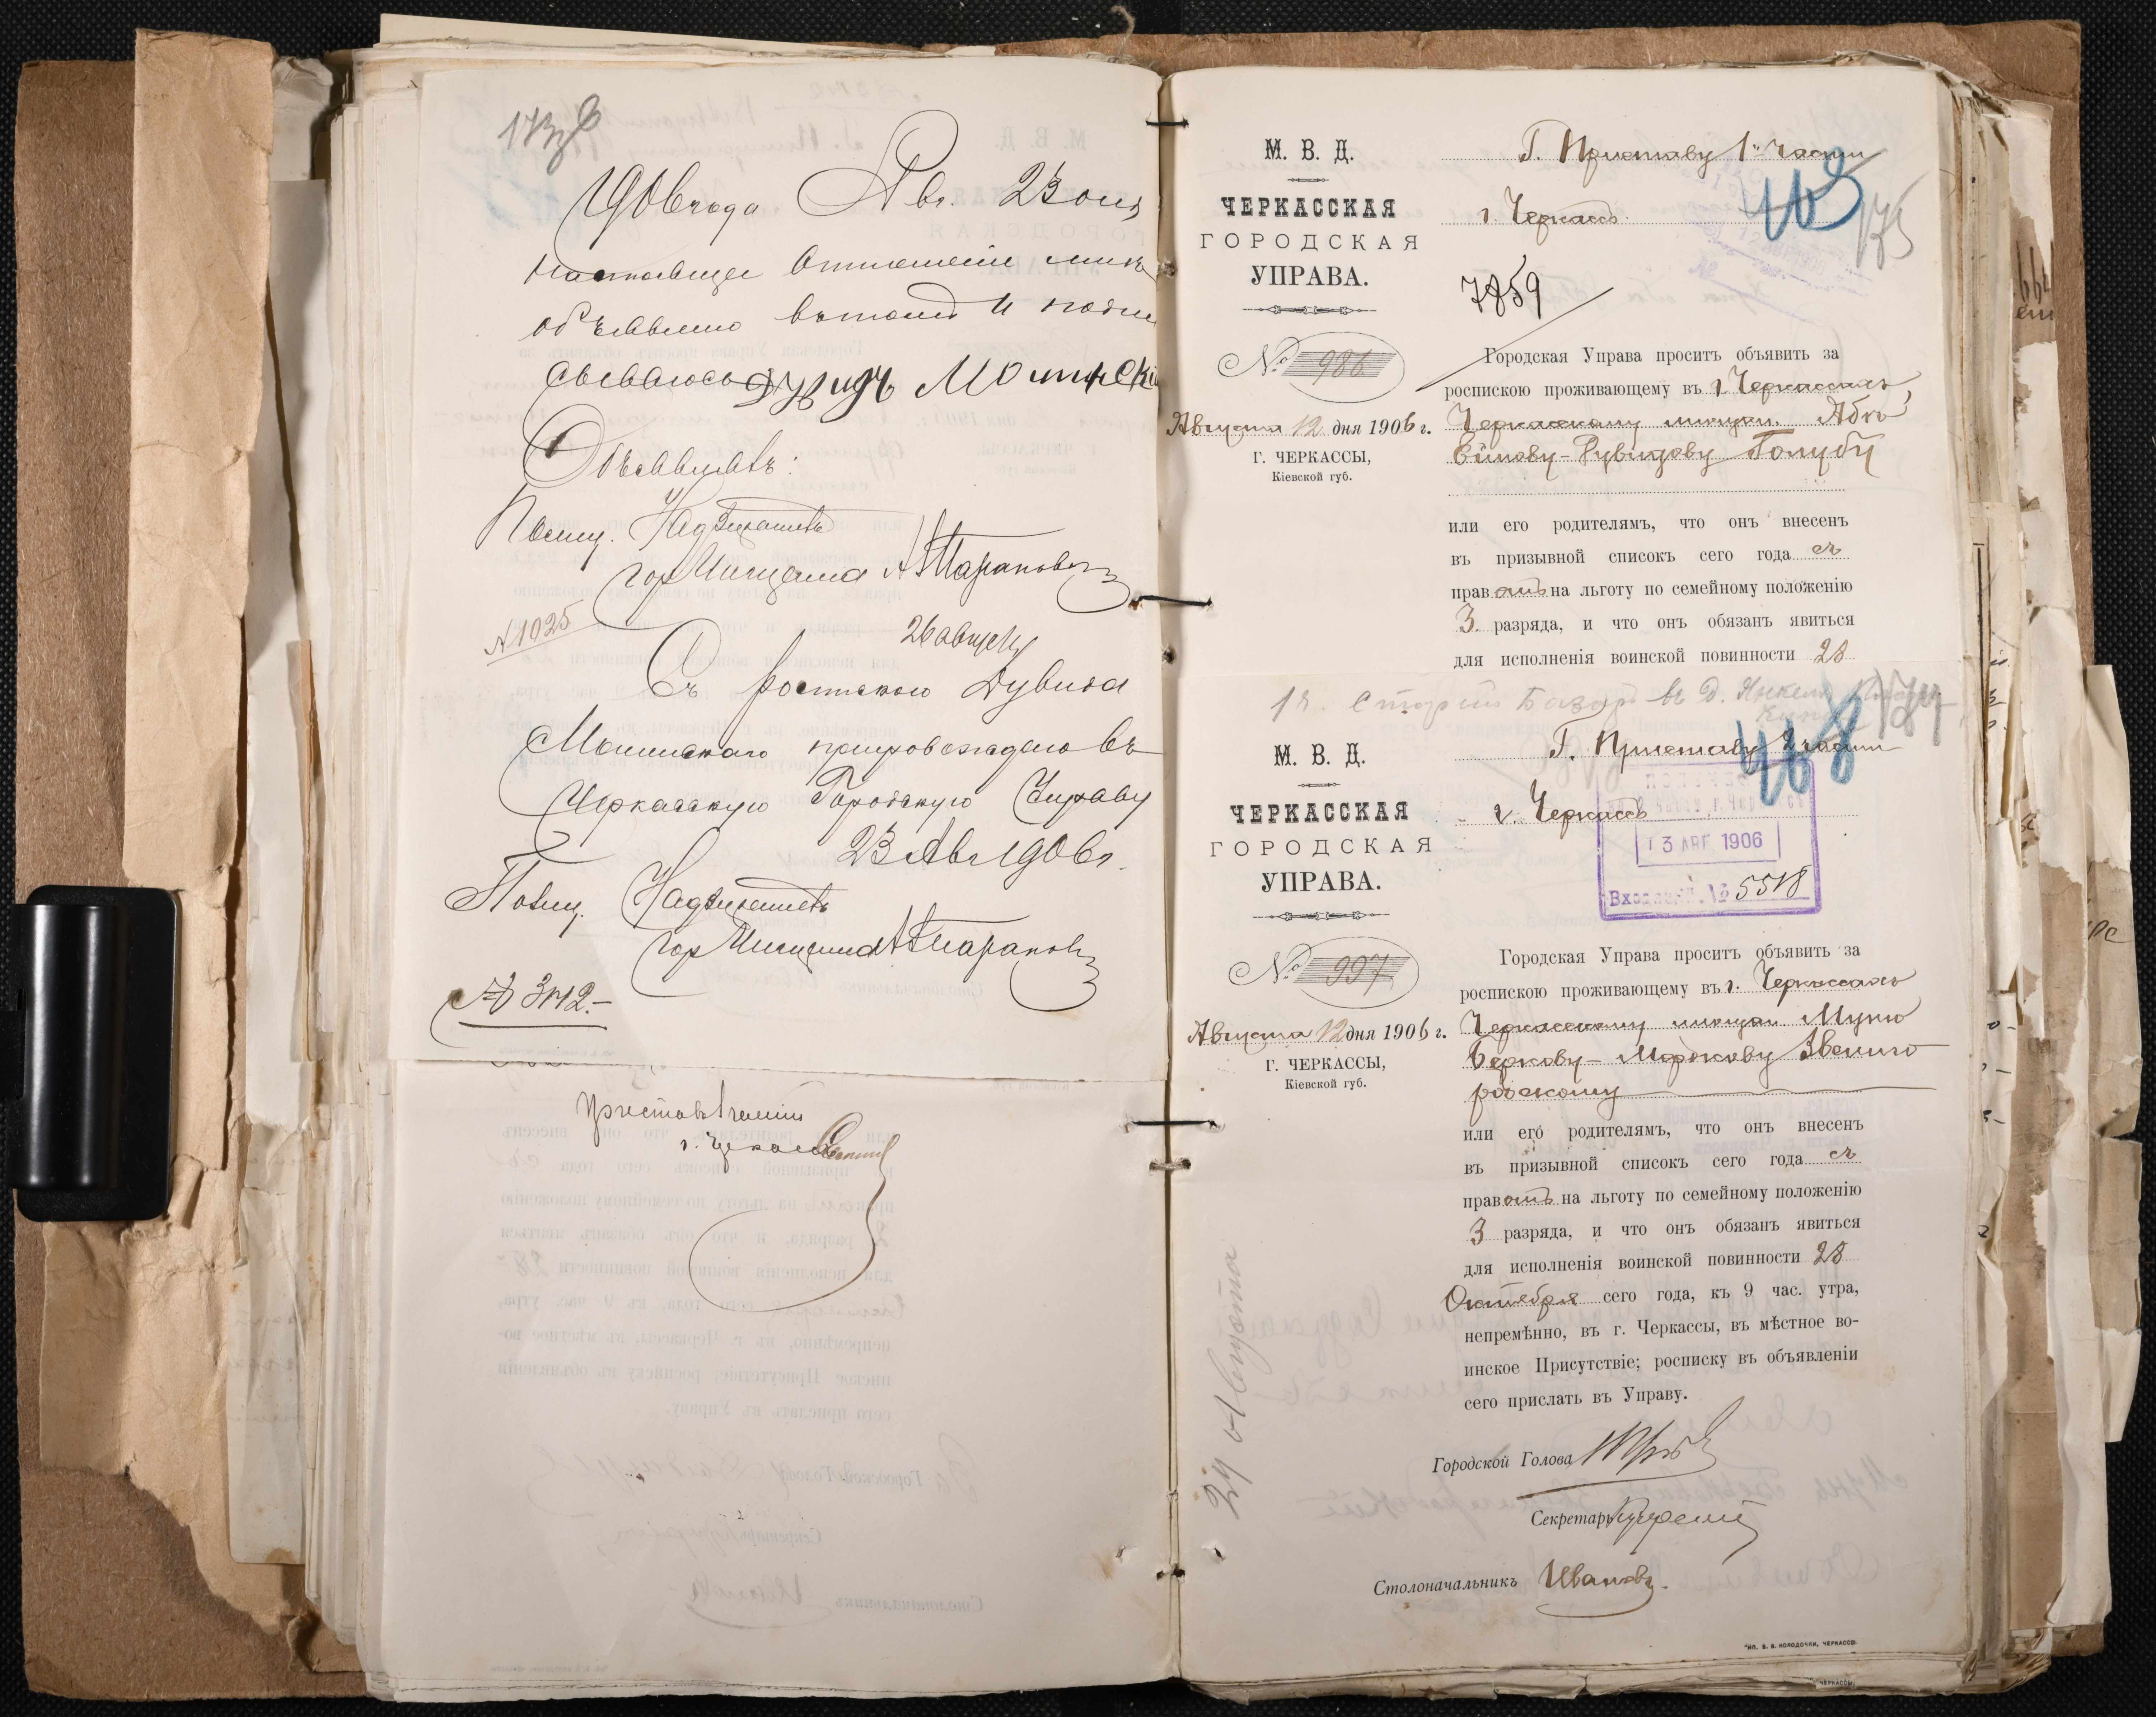 173об
1906 года Авг. 23 дня
настоящее отношение мне
объявлено в томъ и подпи
сываюсь Дувидъ Мошнски
Объявилъ:
Полиц. Надзиратель
гор Мищина А Тарановъ
№ 1025
26 августа
Съ роспискою Дувида
Мошинскаго препровождаю въ
Черкасскую Городскую Управу
23 Авг 1906 г.
Полиц. Надзиратель
гор Мищина А Тарановъ
№ 3412.-
Приставъ 1 части
г. Черкассъ
М. В. Д.
ЧЕРКАССКАЯ
ГОРОДСКАЯ
УПРАВА.
№ 986
Августа 12 дня 1906 г.
Г. ЧЕРКАССЫ,
Кіевской губ.
Г. Приставу 1й части
г. Черкассъ
175
7859
Городская Управа проситъ объявить за
роспискою проживающему въ г. Черкассахъ
Черкасскому мещан. Абѣ
Ейнову-Рувинову Голубу
или его родителямъ, что онъ внесенъ
въ призывной списокъ сего года съ
правомъ на льготу по семейному положенію
3 разряда, и что онъ обязанъ явиться
для исполненія воинской повинности 28
1ч. Старый Базаръ въ д. Янкеля
468
174
М. В. Д.
ЧЕРКАССКАЯ
ГОРОДСКАЯ
УПРАВА.
№ 997
Августа 12 дня 1906 г.
Г. ЧЕРКАССЫ,
Кіевской губ.
Г. Приставу 2 части
г. Черкассъ
13 АВГ 1906
Входящій № 5518
Городская Управа проситъ объявить за
роспискою проживающему въ г. Черкассахъ
Черкасскому мещан Муню
Беркову-Мордкову Звениго
родскому
или его родителямъ, что онъ внесенъ
въ призывной списокъ сего года съ
правомъ на льготу по семейному положенію
3 разряда, и что онъ обязанъ явиться
для исполненія воинской повинности 28
Октября сего года, къ 9 час. утра,
непремѣнно, въ г. Черкассы, въ мѣстное во-
инское Присутствіе; росписку въ объявленіи
сего прислать въ Управу.
Городской Голова
Секретарь
Столоначальникъ Ивановъ.
24 августа
ТИП. В. В. КОЛОДОЧКИ, ЧЕРКАССЫ.